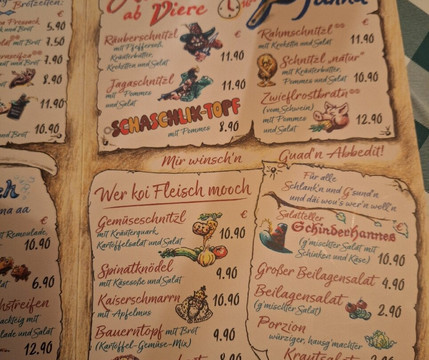 ab Viere
€
Räuberschnitzl
mit Pfefferrah,
Kräuterbutter,
Kroketten und Salat
11.90
Jagaschnitzl
mit Pommes
und Salat
11.90
SCHASCHLIK-TOPF
mit Pommes
8.90
Pfanna
€
Rahmschnitzl
mit Kroketten und Salat
11.90
Schnitzl „natur"
mit Kräuterbutter,
Pommes und Salat
10.90
Zwieflrostbratn
(vom Schwein)
mit Pommes
und Salat
12.90
Brotzeiten:
€
5.90
und Brot
7.50
und Brot
7.90
und Brot
11.90
und Brot
10.90
Mir winsch'n
Guad'n Abbedit!
mit Remonlade,
10.90
6.90
Salat
10.90
Wer koi Fleisch mooch
€
Gemüseschnitzl
mit Kräuterquark,
Kartoffelsalat und Salat
10.90
Spinatknödel
mit Käsesoße und Salat
9.90
Kaiserschmarrn
mit Apfelmus
10.90
Bauerntopf mit Brot
(Kartoffel-Gemüse-Mix)
9.90
8.90
Für alle
Schlank'n und G'sund'n
und däi wou's wer'n woll'n
Salatteller
Schinderhannes
€
(g'mischter Salat mit
Schinken und Käse)
10.90
Großer Beilagensalat
4.90
Beilagensalat
(g'mischter Salat)
2.90
Porzion
würziger, hausg'machter
Krautsalat